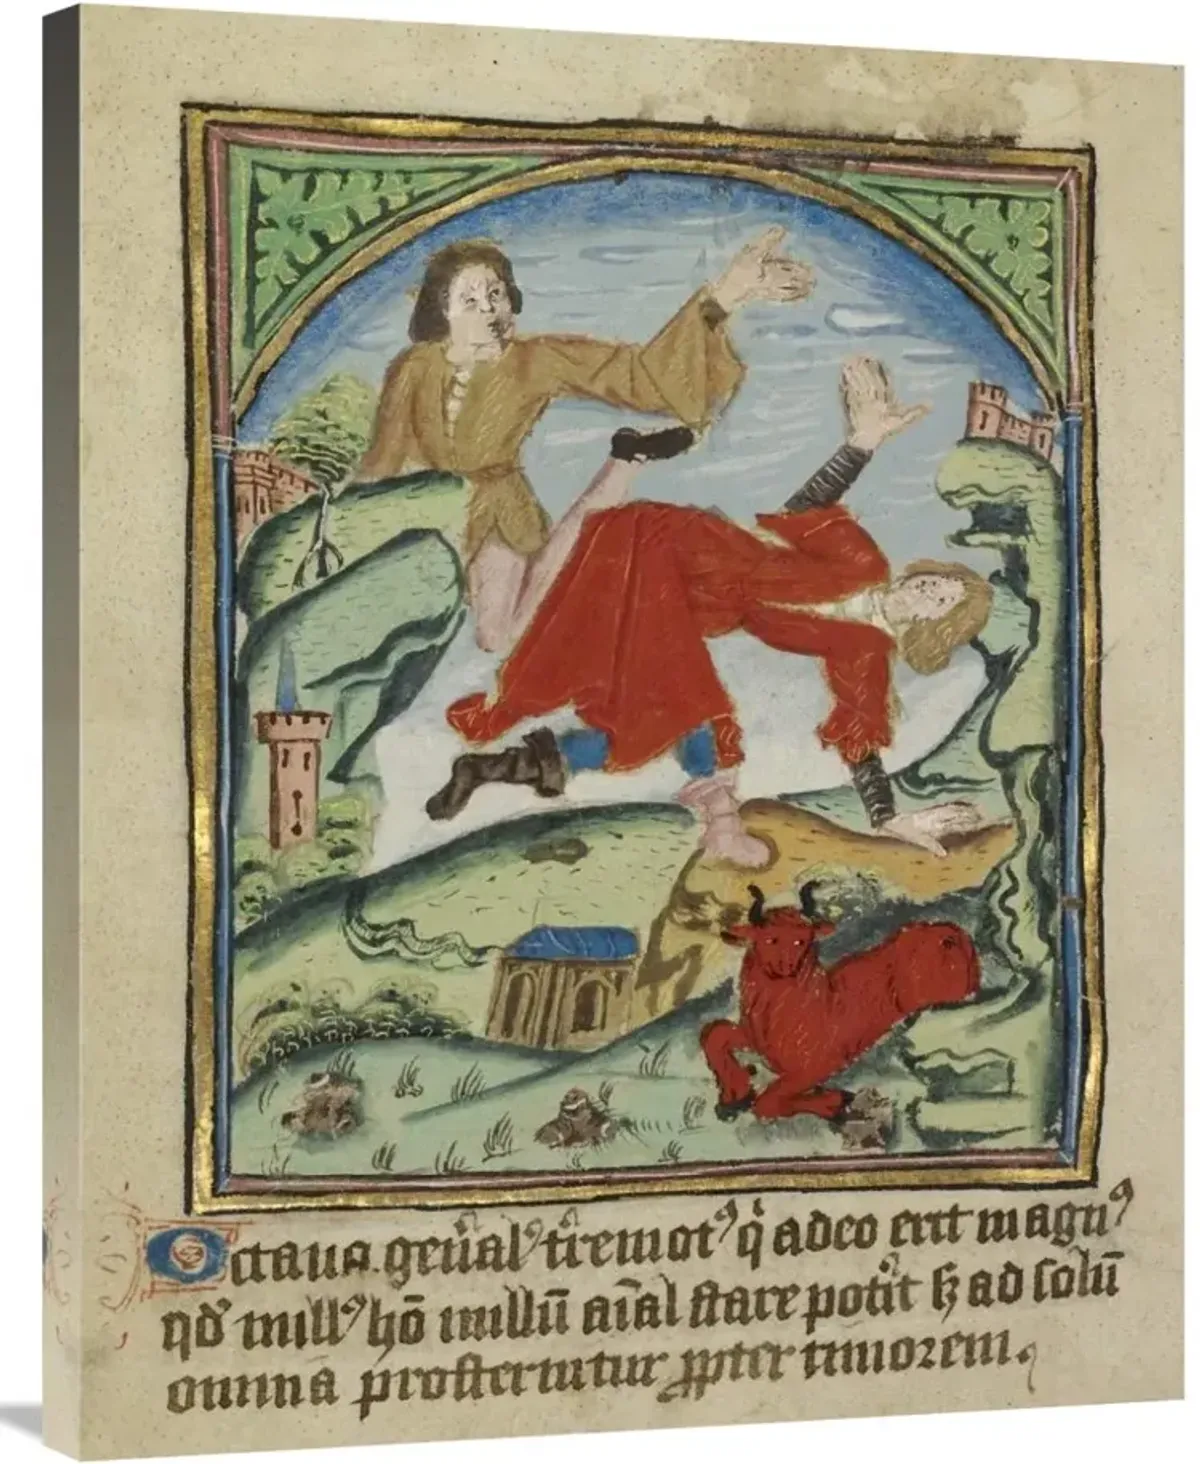 Octauo. gen̄al᾽ t̄remot᾽ q̇ adeo erit magn᾽
qd̓ null᾽ hō nullū aīal stare pot̓it sȝ ad solū
omnia prosternūtur ꝓpter timorem.